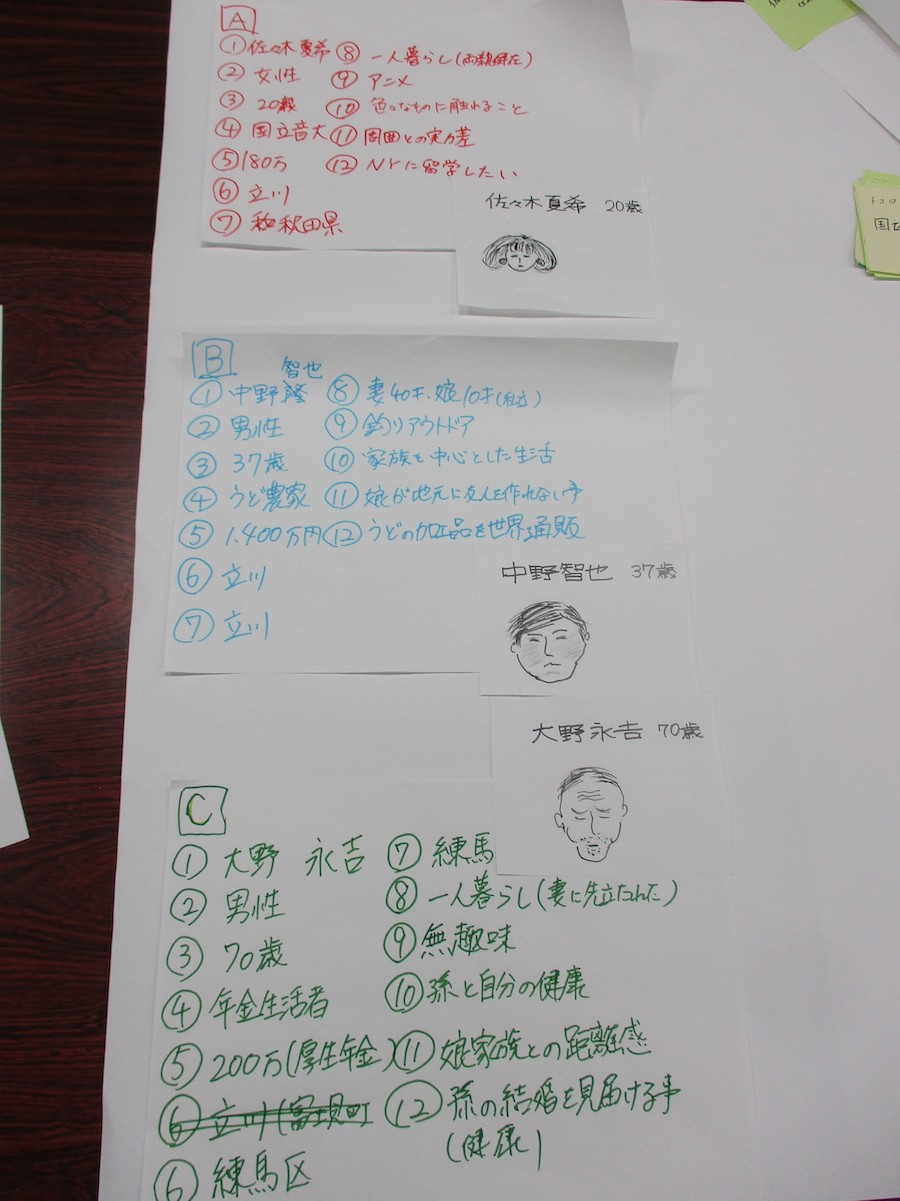 A
①佐々木夏希
②女性
③20歳
④国立音大
⑤180万
⑥立川
⑦秋田県
⑧一人暮らし(両親健在)
⑨アニメ
⑩色々なものに触れること
⑪周囲との実力差
⑫NYに留学したい
佐々木夏希 20歳
B
智也
①中野隆
②男性
③37歳
④うど農家
⑤1.400万円
⑥立川
⑦立川
⑧妻40才.娘10才(私立)
⑨釣りアウトドア
⑩家族を中心とした生活
⑪娘が地元に友人を作れない事
⑫うどの加工品を世界通販
中野智也 37歳
大野永吉 70歳
C
①大野 永吉
②男性
③70歳
④年金生活者
⑤200万(厚生年金)
⑥立川(富士見町
⑥練馬区
⑦練馬
⑧一人暮らし(妻に先立たれた)
⑨無趣味
⑩孫と自分の健康
⑪娘家族との距離感
⑫孫の結婚を見届ける事
(健康)
国立